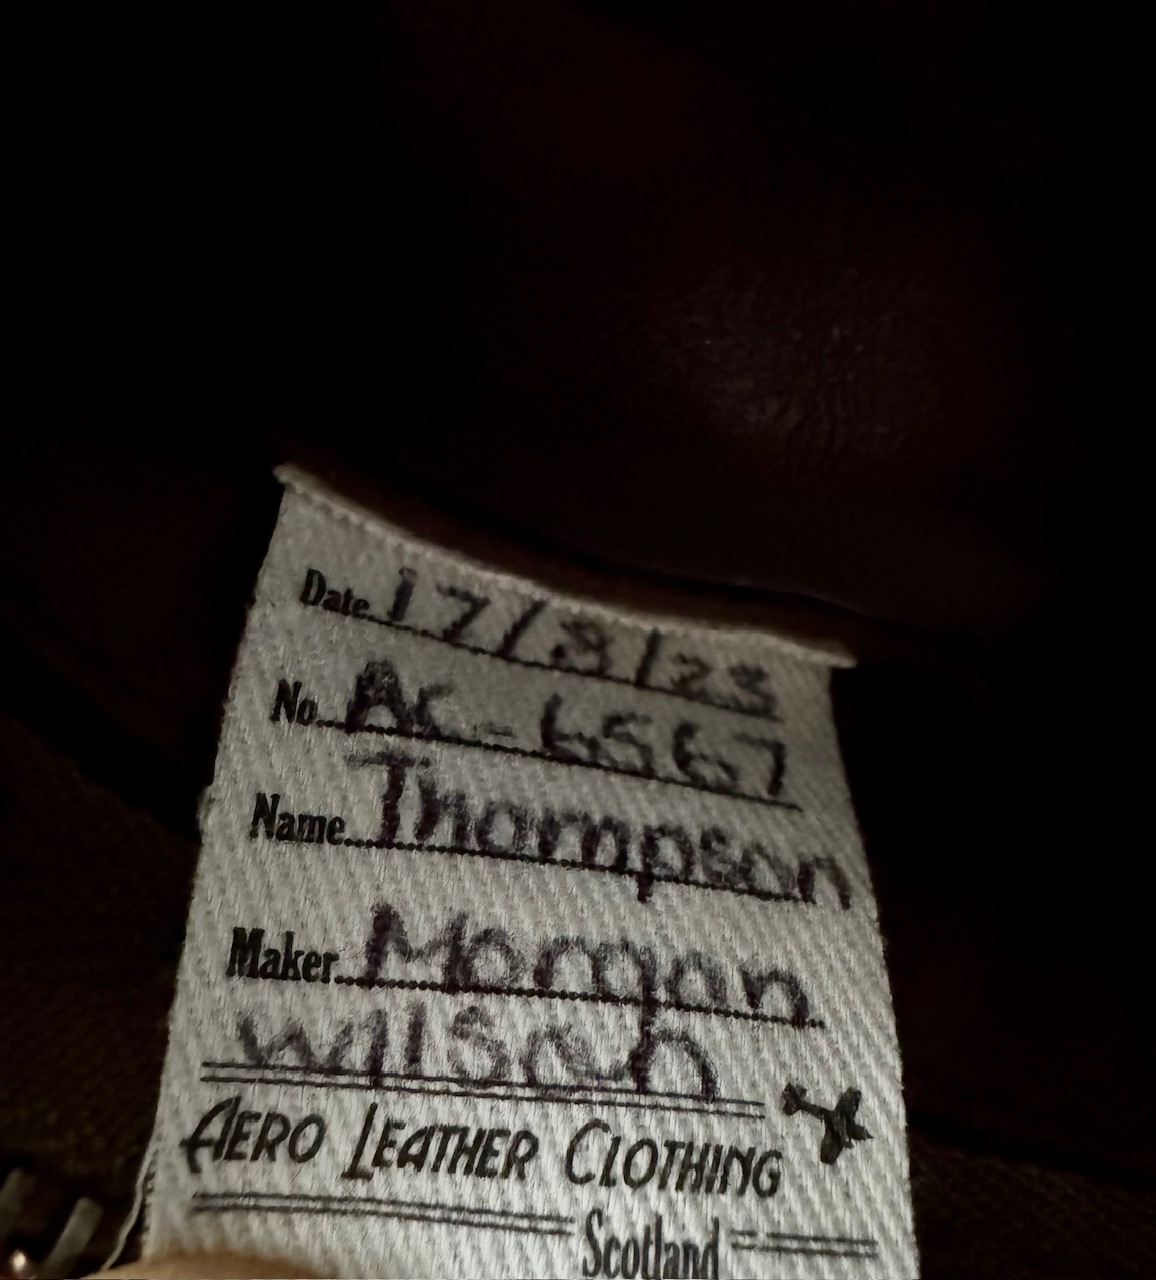 Date 17/3/23
No AC-6567
Name Thompson
Maker Morgan
Wilson
AERO LEATHER CLOTHING
Scotland